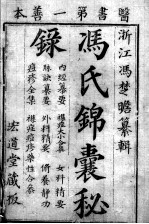 醫書第一善本
浙江馮楚瞻纂輯
馮氏錦囊秘
錄
內經纂要 雜症大小合參 女科精要
脉訣纂要 外科精要 脩養靜功
痘疹全集 雜症痘疹藥性合參
宏道堂藏板